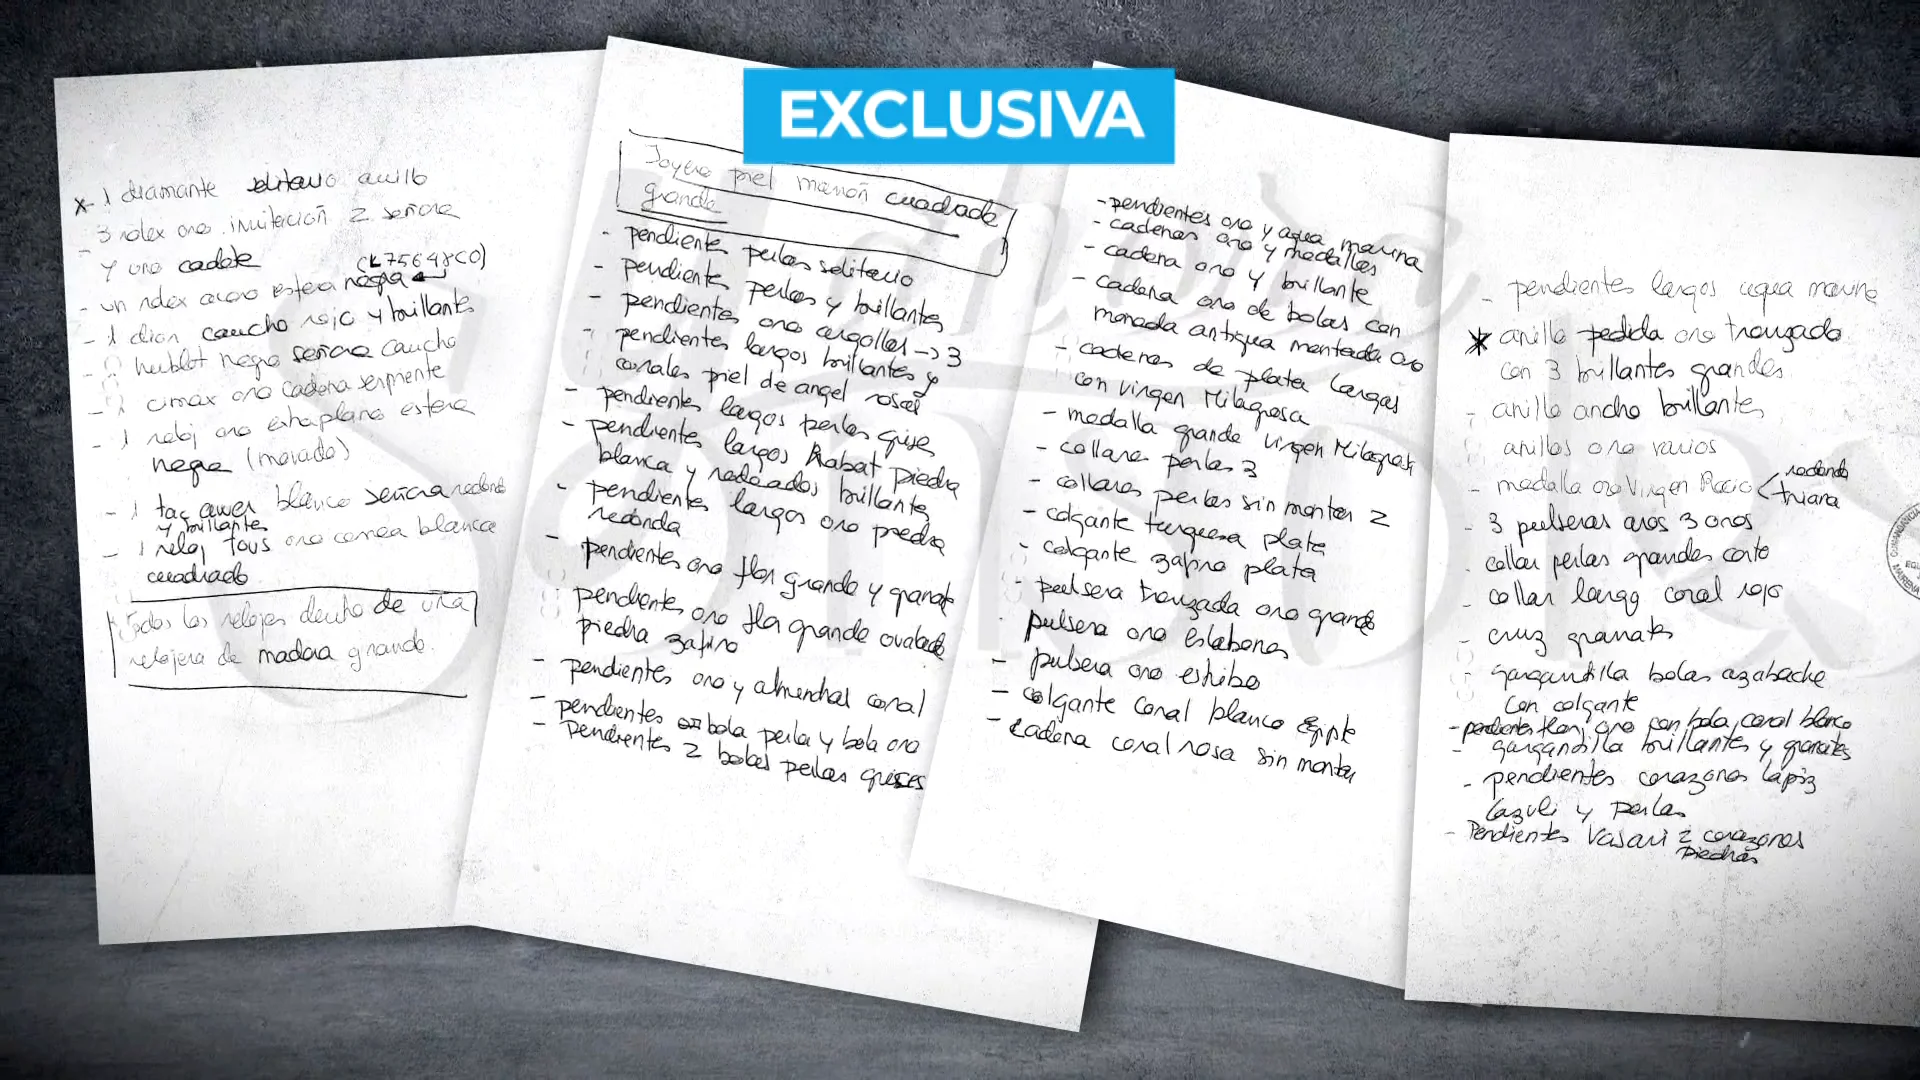 EXCLUSIVA
x- 1 diamante solitario anillo
- 3 rolex oro invitación 2 señora
y uno cadete
(L75648CO)
- un rolex acero esfera negra
- 1 dior caucho rojo y brillantes
- hublot negro señora caucho
- 1 cimax oro cadena serpiente
- 1 reloj oro extraplano esfera
negra (movado)
- 1 tag auer blanco señora redondo
y brillantes
- 1 reloj tous oro correa blanca
cuadrado
Todos los relojes dentro de una
relojera de madera grande.
Joyero piel marrón cuadrado
grande
- pendientes perlas solitario
- pendientes perlas y brillantes
- pendientes oro argollas -> 3
- pendientes largos brillantes y
corales piel de angel rosas
- pendientes largos perlas grises
- pendientes largos Rabat piedra
blanca y rodeados brillantes
- pendientes largos oro piedra
redonda
- pendientes oro flor grande y granate
pendientes oro flor grande ovalada
piedra zafiro
- pendientes oro y almendras coral
- pendientes bola perla y bola oro
- Pendientes 2 bolas perlas grises
- pendientes oro y agua marina
- cadenas oro y medallas
- cadena oro y brillante
- cadena oro de bolas con
moneda antigua montada oro
- cadenas de plata largas
con virgen Milagrosa
- medalla grande virgen Milagrosa
- collares perlas 3
- collares perlas sin montar 2
- colgante turquesa plata
- colgante zafiro plata
- pulsera trenzada oro grande
pulsera oro eslabones
- pulsera oro estribo
- colgante coral blanco Egipto
- cadena coral rosa sin montar
- pendientes largos agua marina
* anillo pedida oro trenzado
con 3 brillantes grandes
- anillo ancho brillantes
anillos oro varios
- medalla oro Virgen Rocio < redonda
triana
- 3 pulseras aros 3 oros
- collar perlas grandes corto
- collar largo coral rojo
- cruz granates
- gargantilla bolas azabache
con colgante
- pendientes flor oro con bola coral blanco
- gargantilla brillantes y granates
- pendientes corazones lapiz
lazuli y perlas
- Pendientes Vasari 2 corazones
piedras